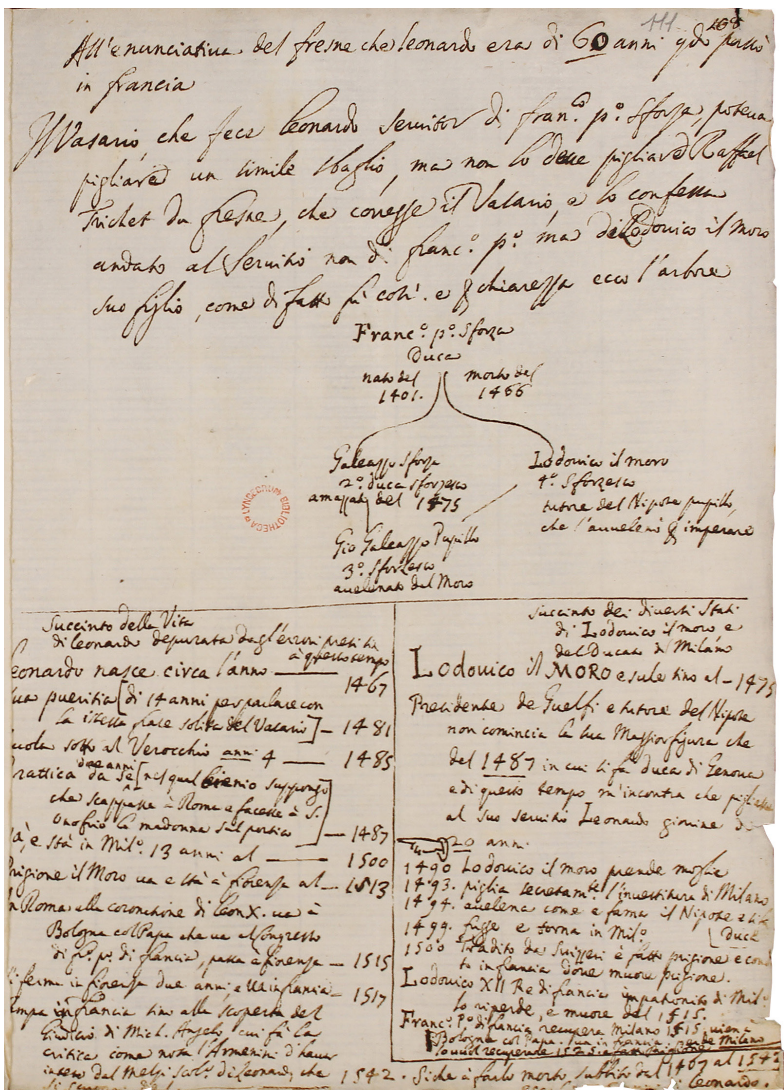 111 108
All'enunciativa del fresne che leonardo era di 60 anni qdo passò
in francia
Il Vasario, che fece leonardo servitor di fran.co p.o Sforza, poteva
pigliare un simile sbaglio, ma non lo deve pigliare Raffael
Trichet du fresne, che coresse il Vasario, e lo confessa
andato al Servitio non di franc.o p.o ma di Lodovico il moro
suo figlio, come di fatto fù così. e p chiarezza ecco l'arbore
Franc.o p.o Sforza
Duca
nato del 1401.
morto del 1466
Galeazzo Sforza
2.o duca sforzesco
amazzato del 1475
Lodovico il moro
4.o Sforzesco
tutore del Nipote pupillo,
che l'avvelenò p imperare
Gio Galeazzo Pupillo
3.o Sforzesco
avelinato dal Moro
LYNCEORUM BIBLIOTHECA
Succinto della Vita
di leonardo depurata dagl'errori
à questo tempo
eonardo nasce circa l'anno — 1467
ua pueritia [di 14 anni per parlare con
la istessa frase solita del Vasario] — 1481
uola sotto al Verocchio anni 4 — 1485
due anni
rattica da se [nel qual biennio suppongo
che scappasse à Roma e facesse à S.
Onofrio la madonna sul portico] — 1487
à, e stà in Mil.o 13 anni al — 1500
rigione il Moro va e stà à fiorenza al — 1513
n Roma alla coronatione di leon X. va à
Bologna col Papa che va al Congresso
di fr.o p.o di francia, passa à fiorenza — 1515
i ferma in fiorenza due anni, e va in francia — 1517
ampa in francia sino alla scoperta del
Giudicio di Mich. Angelo, cui fà la
critica come nota l'Armenini d'haver
inteso dal Melzi scol.o di leonardo, che — 1542.
succinto dei diversi stati
di Lodovico il moro e
del Ducato di Milano
Lodovico il MORO esule sino al — 1475
Presidente de Guelfi e tutore del Nipote
non comincia la sua Maggior figura che
del 1487 in cui si fà duca di Genova
e di questo tempo m'incontra che
al suo servitio Leonardo giovine di
20 anni.
1490 Lodovico il moro prende moglie
1493. piglia secretam.te l'investitura di Milano
1494. avelena come è fama il Nipote e si fà
Duca
1499. fugge e torna in Mil.o
1500 tradito da Suizzeri è fatto prigione e condo
to in francia dove muore prigione.
Lodovico XII Re di francia impatronito di Mil.o
lo riperde, e muore del 1515.
Franc.o P.o di francia recupera Milano 1515, viene à
Bologna col Papa. và in francia, perde Milano
1525
Si che à farlo morto, subbito dal 1467 al 1542
leonardo